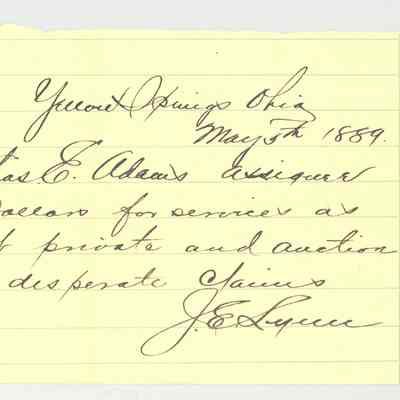 Yellow Springs Ohio
May 5th 1889.
as E. Adams assignee
Dollars for services as
private and auction
desperate claims
J. E. Lynn